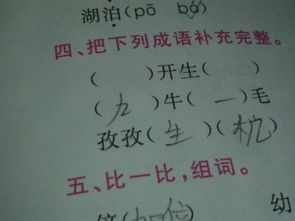 湖泊(pō bó)
四、把下列成语补充完整。
( )开生( )
(九)牛(一)毛
孜孜(生)(枕)
五、比一比,组词。
幼